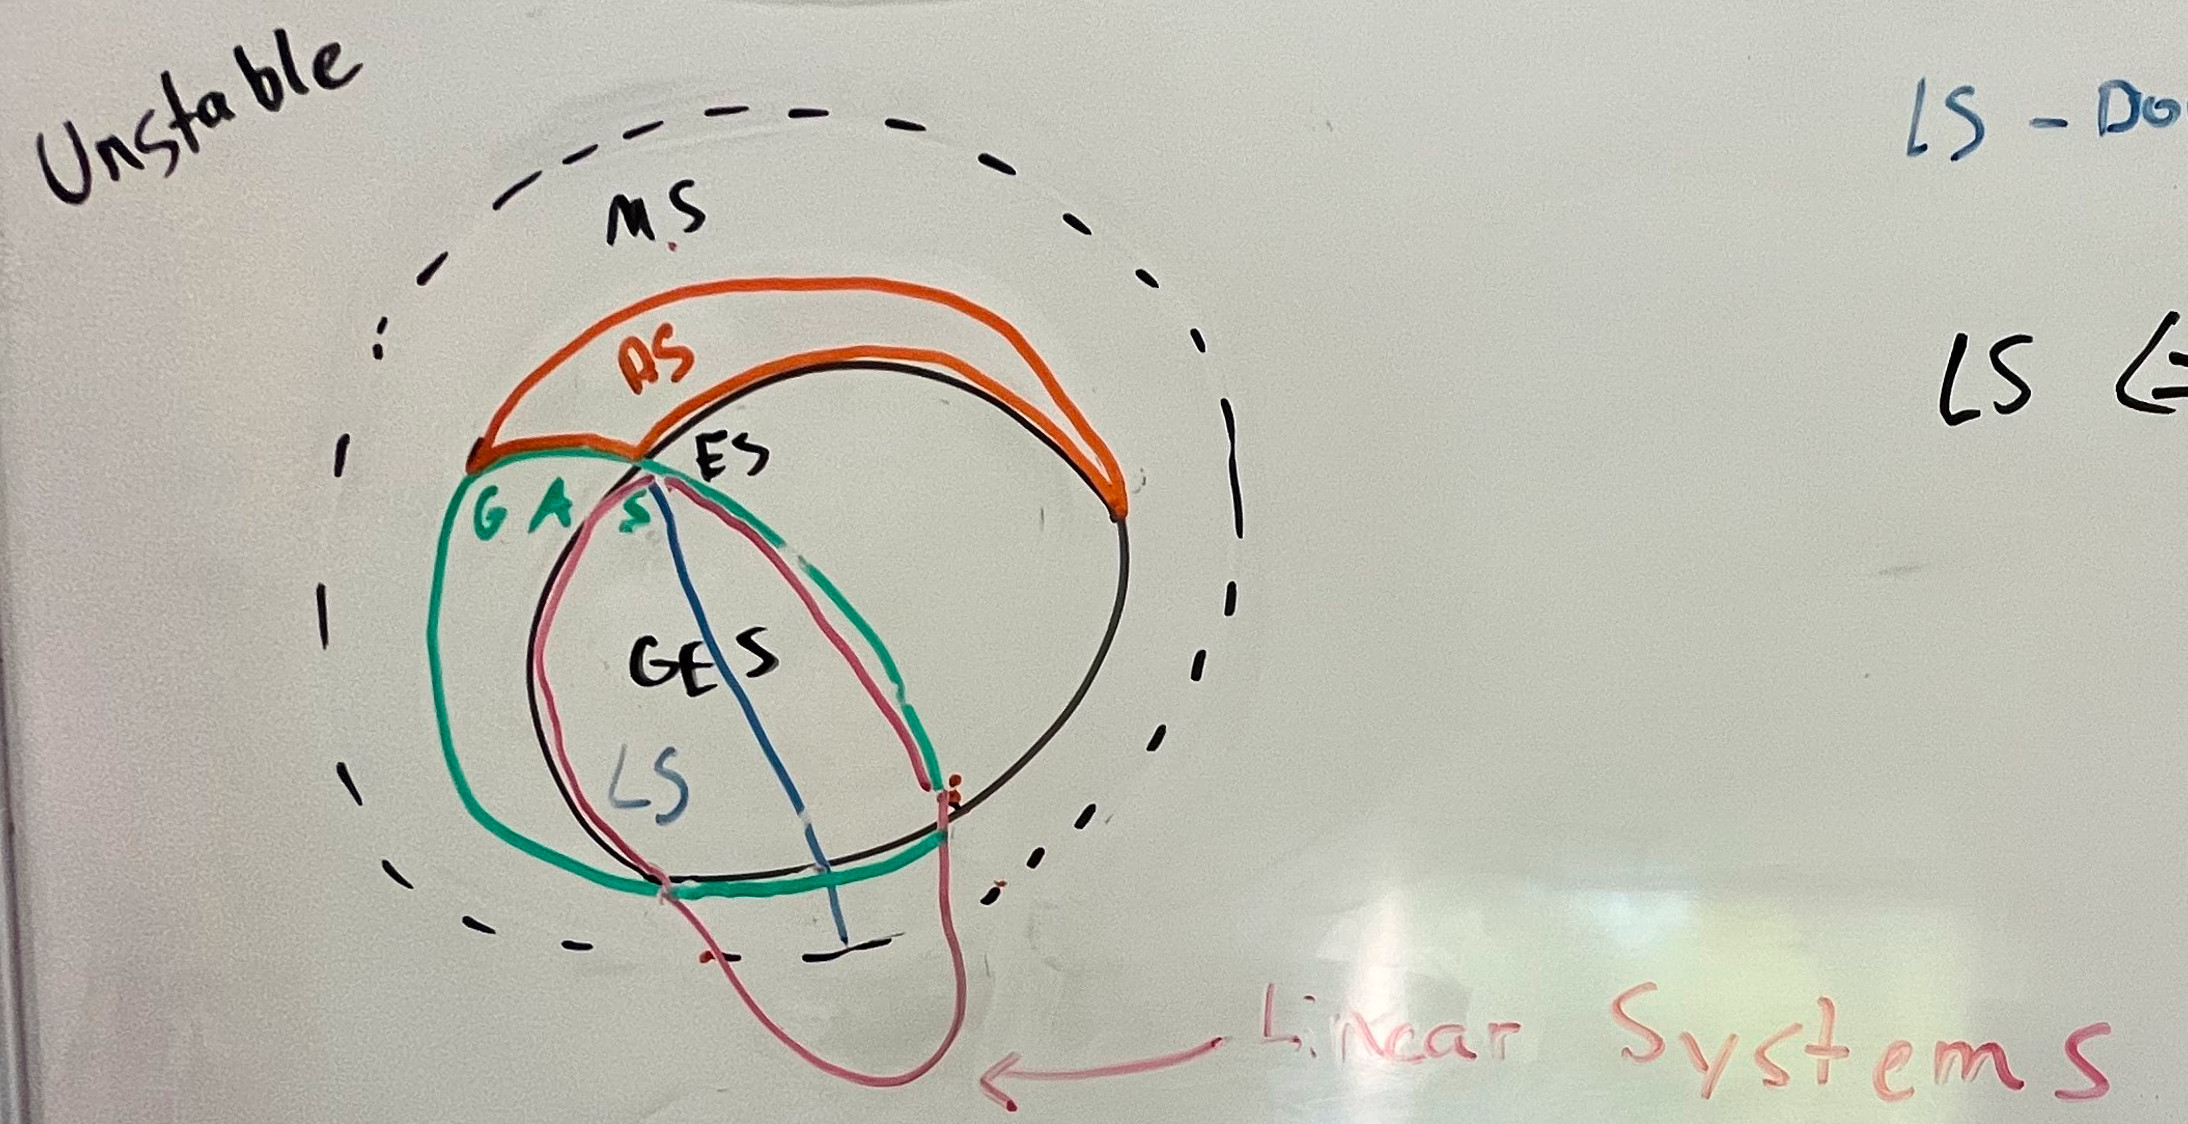 Unstable
MS
AS
ES
GAS
GES
LS
Linear Systems
LS - Do
LS